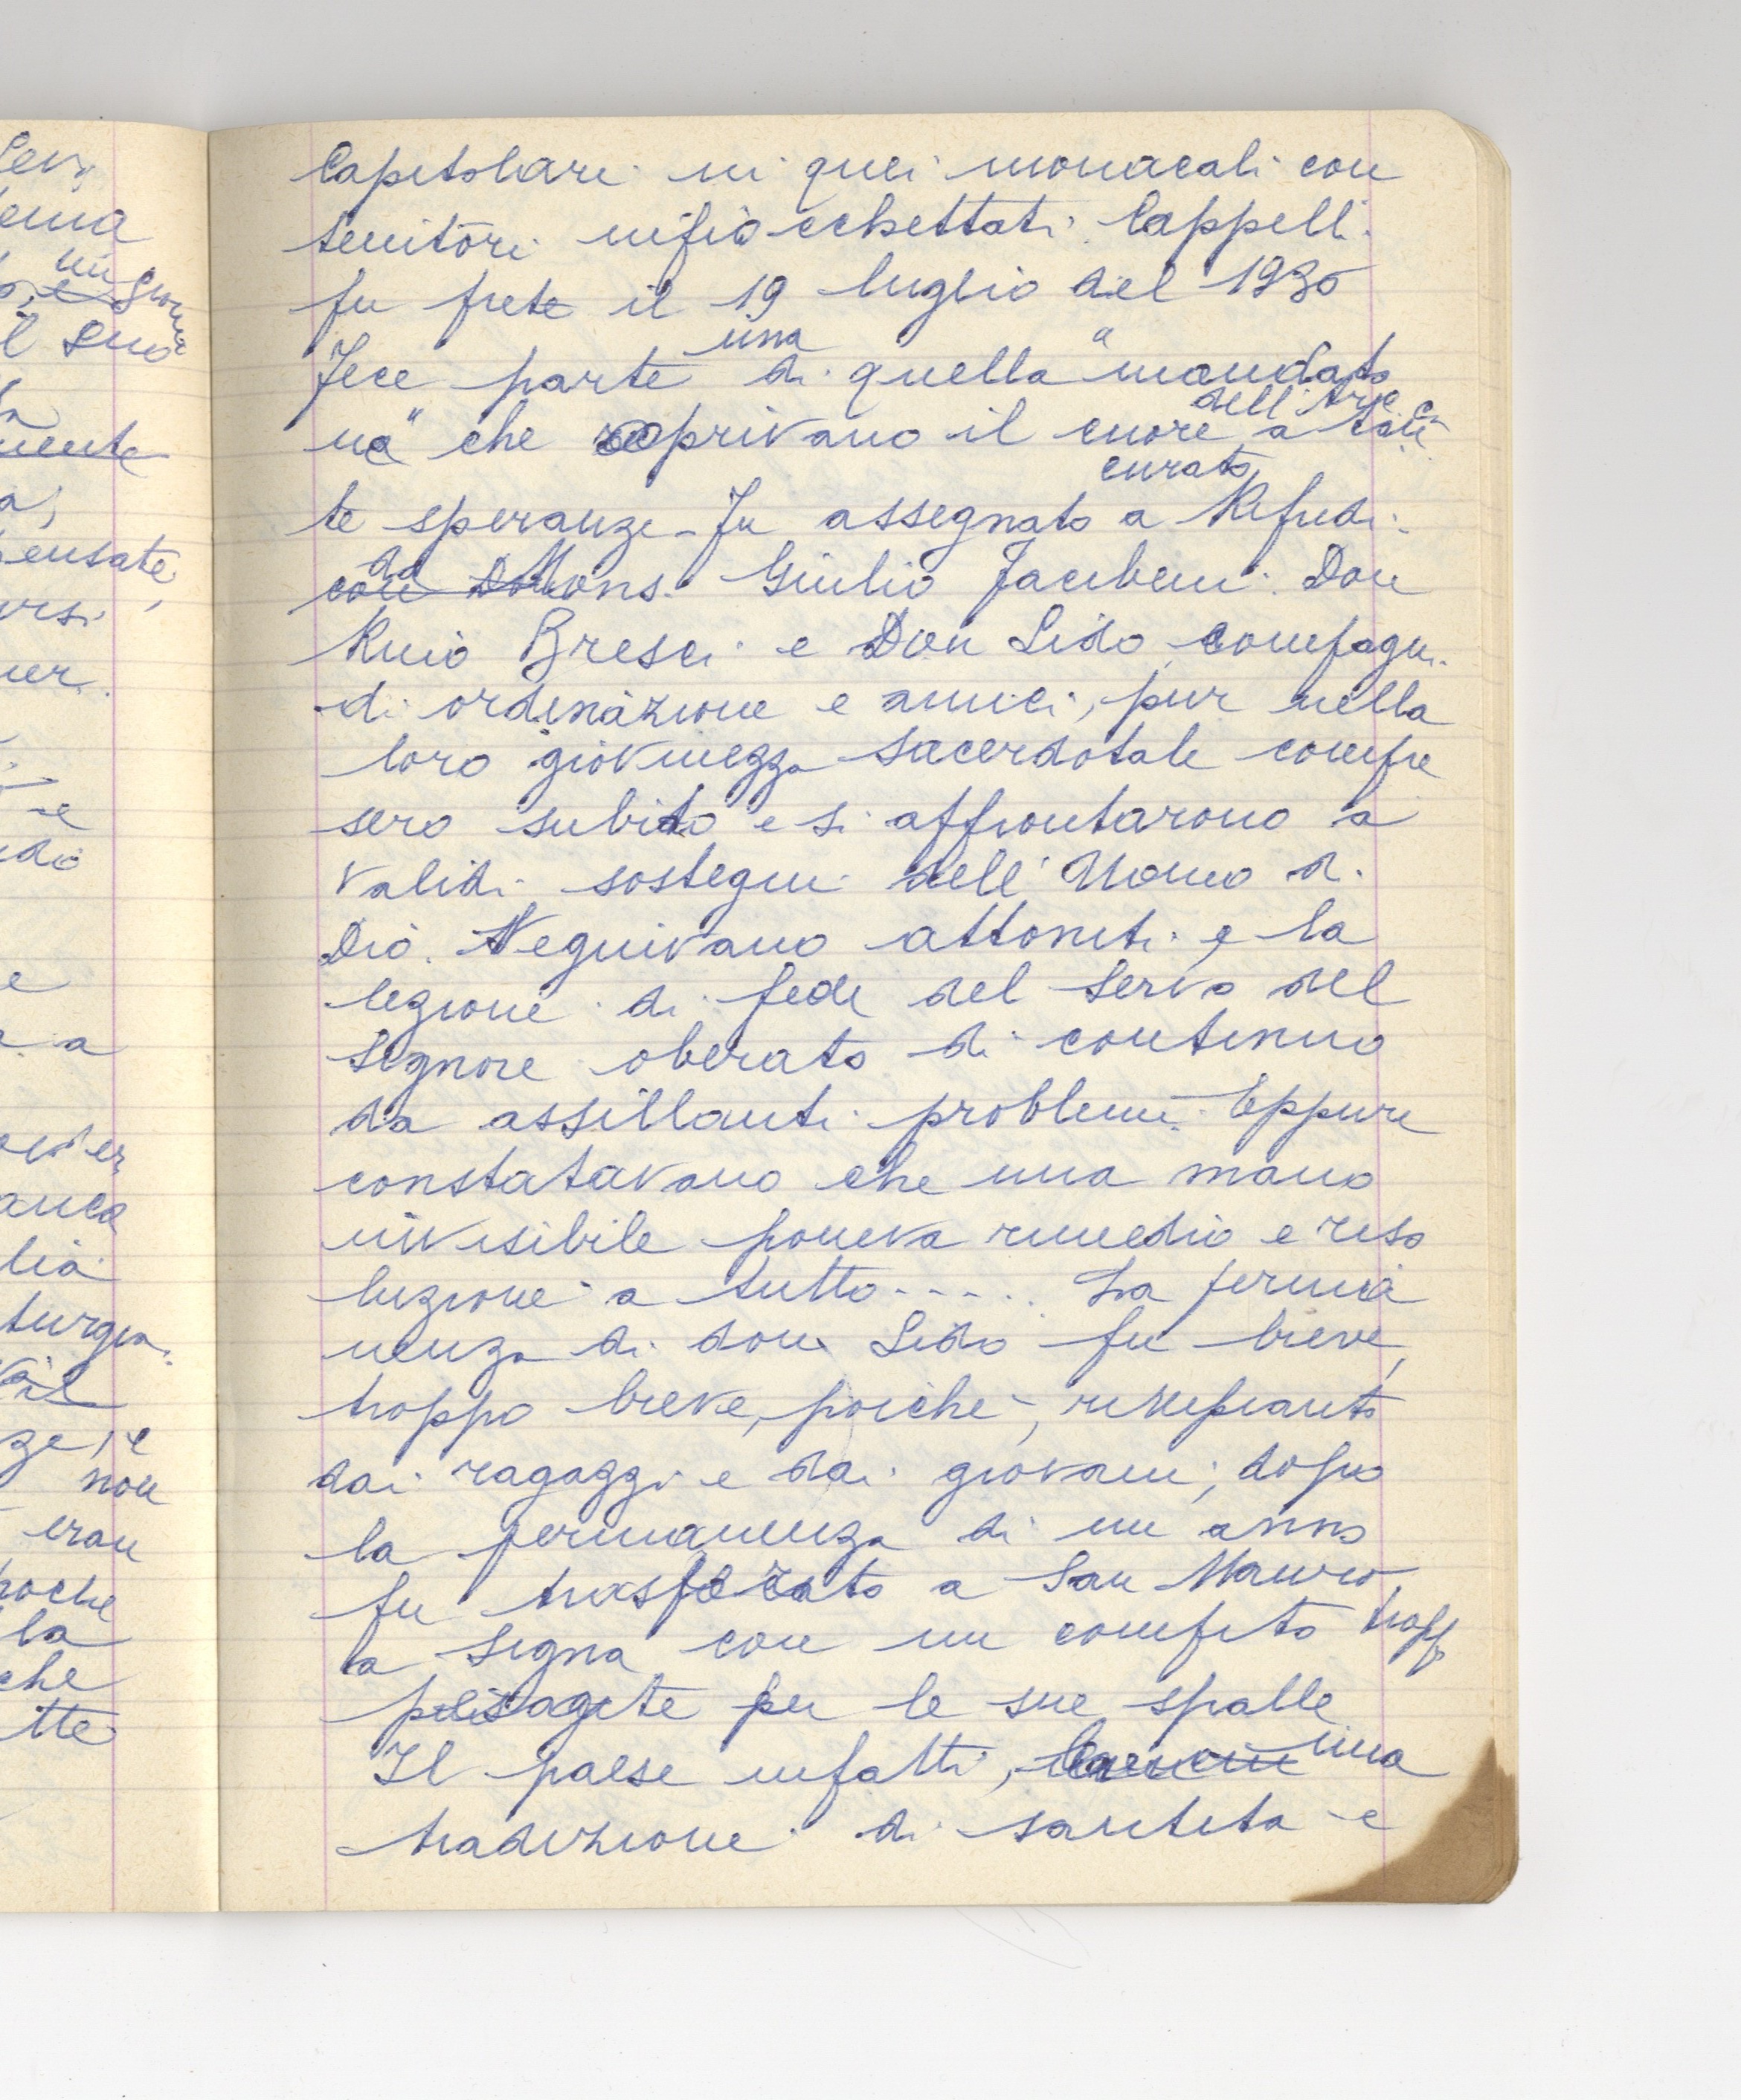 Capitolari in quei monacali con
tenitori infiocchettati Cappelli.
fu prete il 19 luglio del 1930
Fece parte di una quella "mandata
na" che aprivano il cuore dell'Arc. a tan
te speranze - Fu assegnato curato a Rifredi
da Mons. Giulio Facibeni. Don
Pinio Bresci e Don Lido compagni
di ordinazione e amici, pur nella
loro giovinezza sacerdotale compre
sero subito e si affrontarono a
validi sostegni dell'Uomo di
Dio. Seguivano attoniti e la
lezione di fede del Servo del
Signore oberato di continuo
da assillanti problemi. Eppure
constatavano che una mano
invisibile poneva rimedio e riso
luzione a tutto..... La perma
nenza di don Lido fu breve,
troppo breve, poiché, rimpianto
dai ragazzi e dai giovani, dopo
la permanenza di un anno
fu trasferito a San Mauro
a Signa con un compito tropp
per le sue spalle
Il paese infatti, una
tradizione di santità e